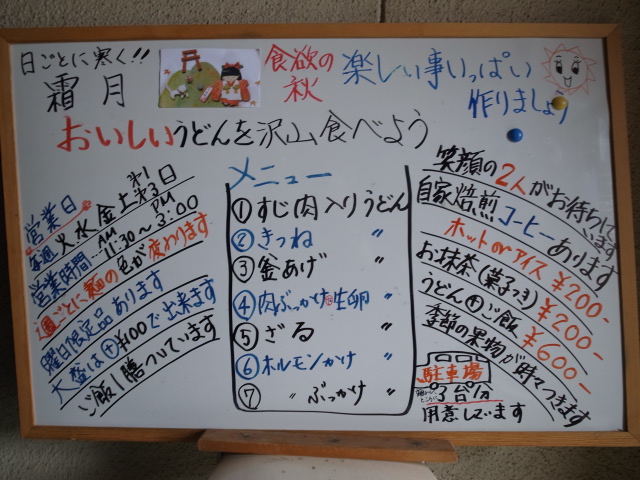 日ごとに寒く!!
霜月
食欲の秋
楽しい事いっぱい
作りましょう
おいしいうどんを沢山食べよう
営業日 第1第3日
毎週 火 水 金 土
営業時間… AM 11:30～PM 3:00
1週ごとに麺の色が変わります
曜日限定品あります
大盛は⊕¥100で出来ます
ご飯1膳ついています
メニュー
①すじ肉入りうどん
②きつね 〃
③釜あげ 〃
④肉ぶっかけ 生卵 〃
⑤ざる 〃
⑥ホルモンかけ 〃
⑦ 〃 ぶっかけ 〃
笑顔の2人がお待ちしています
自家焙煎コーヒーあります
ホット or アイス ¥200-
お抹茶(菓子つき) ¥200-
うどん⊕ご飯 ¥600-
季節の果物が時々つきます
駐車場
3台分
用意しています